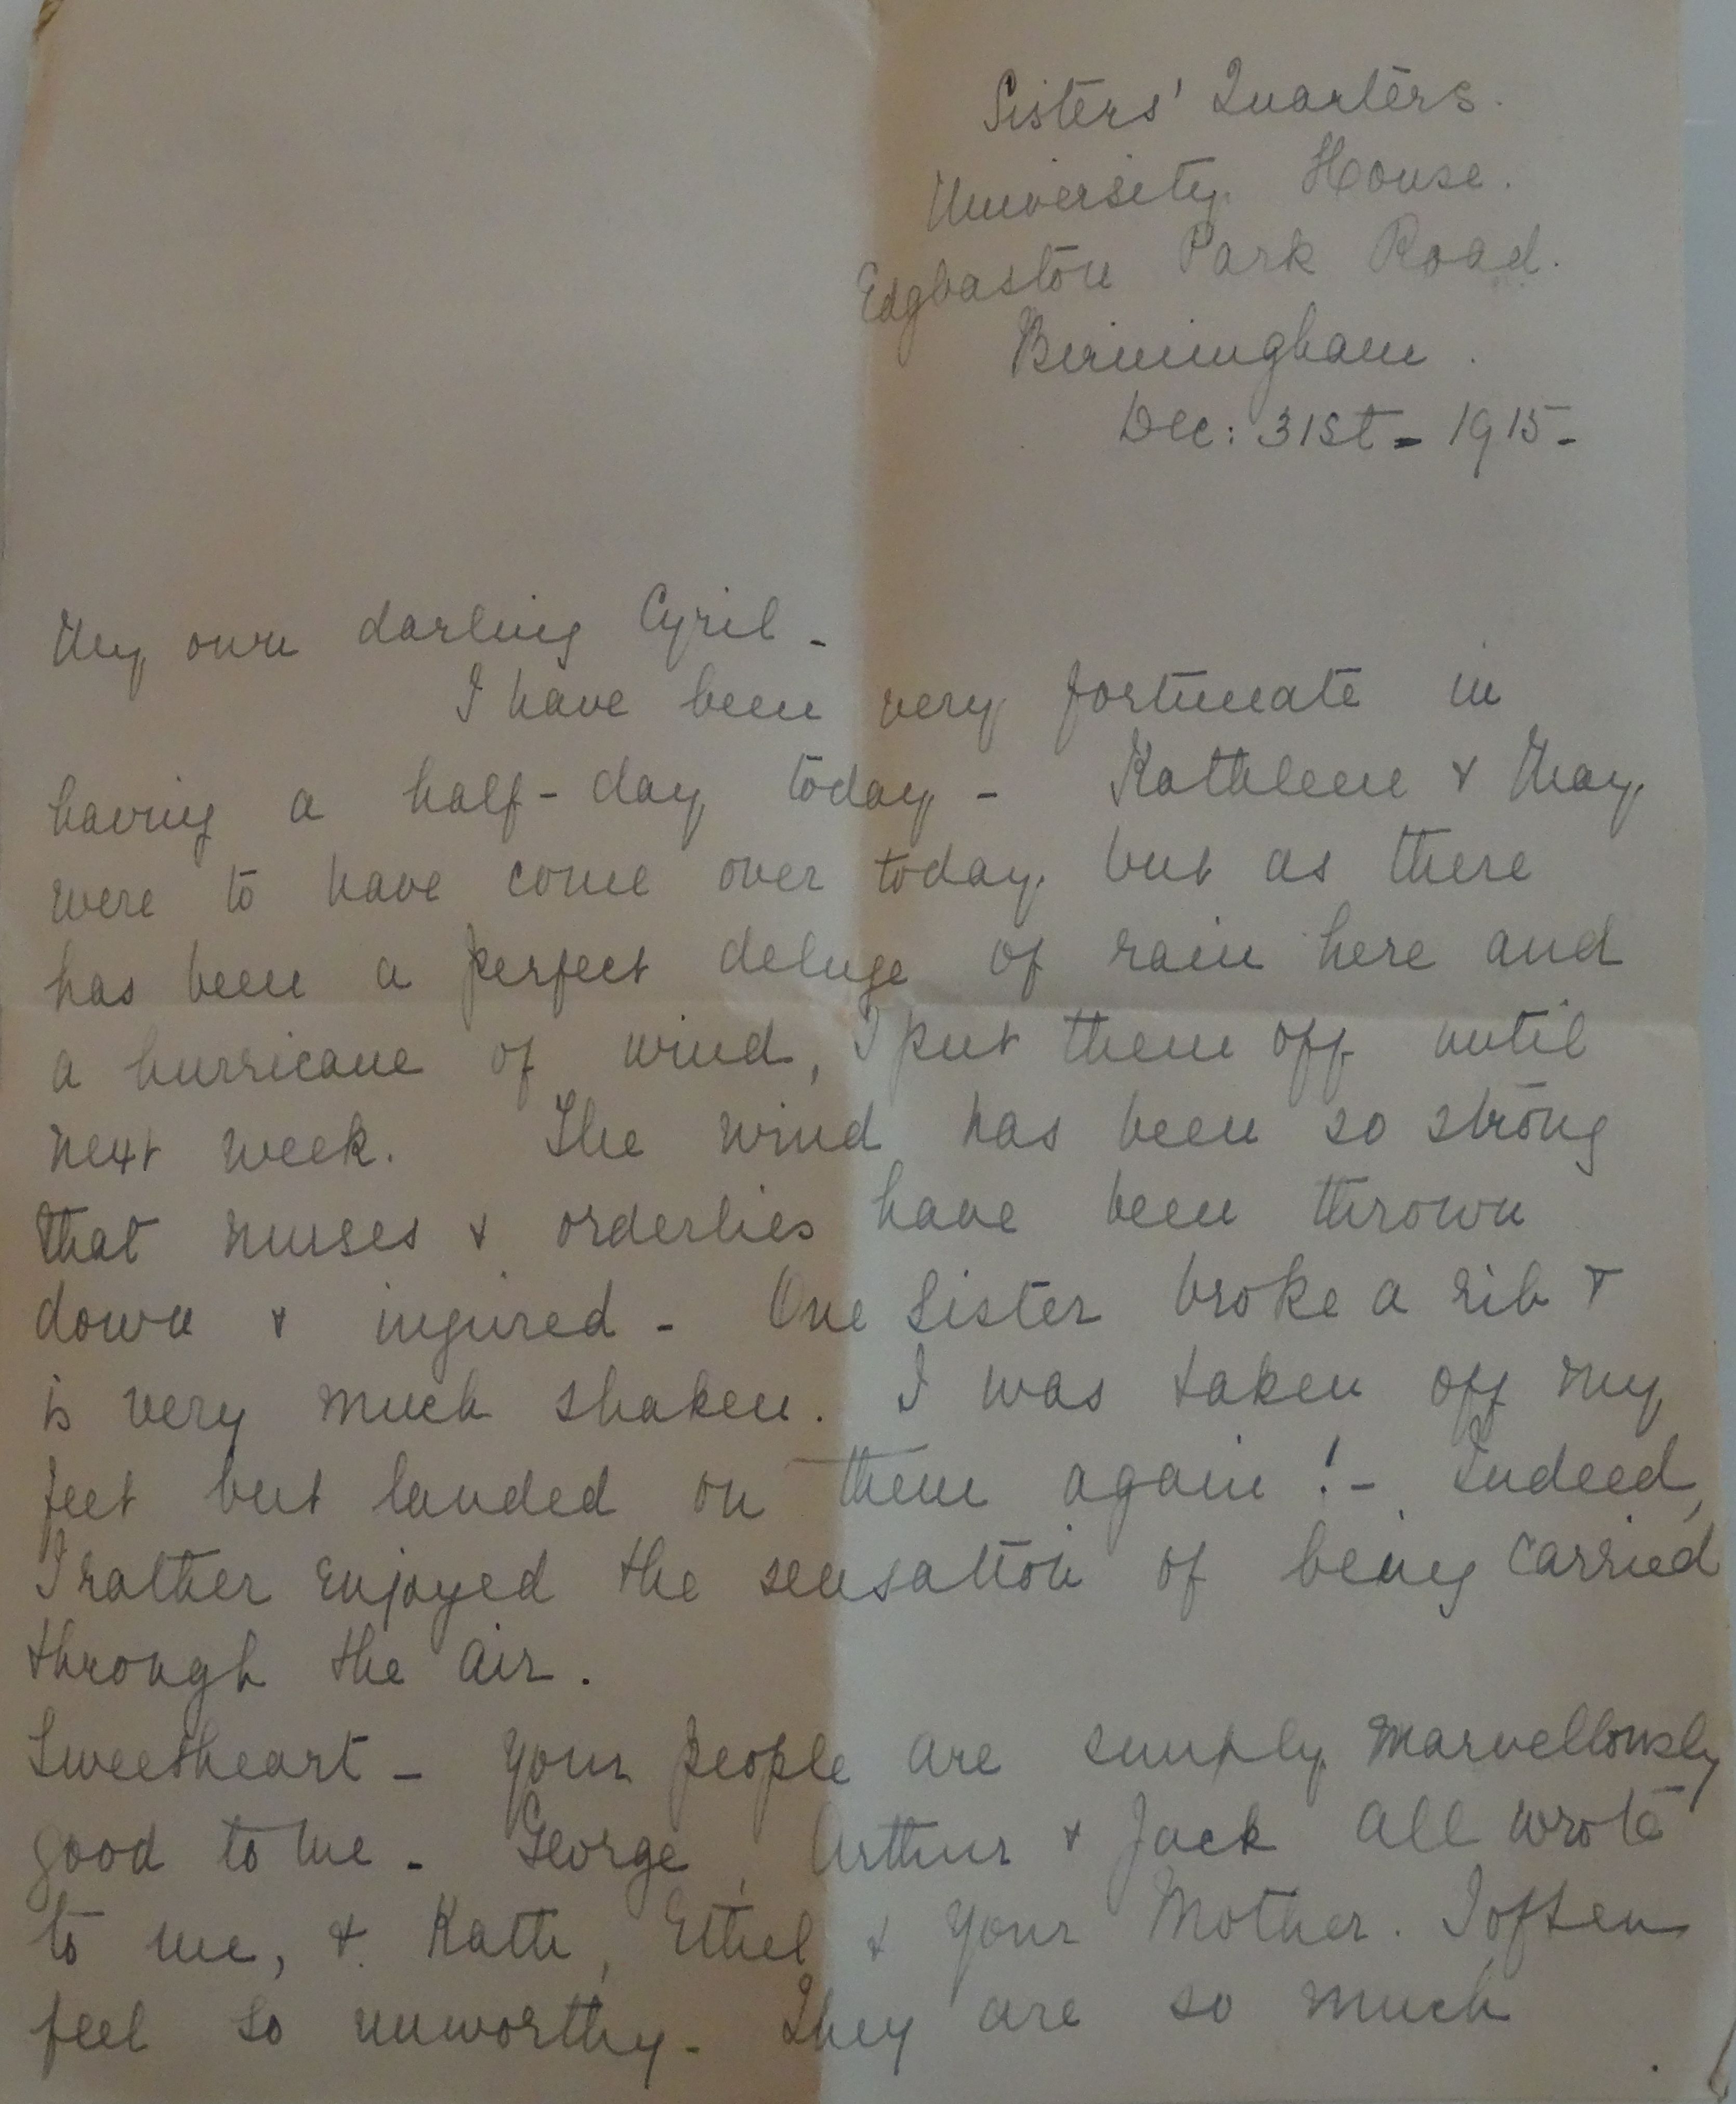 Sisters' Quarters.
University House.
Edgbaston Park Road.
Birmingham.
Dec: 31st - 1915 -
My own darling Cyril -
I have been very fortunate in
having a half-day today - Kathleen & May
were to have come over today but as there
has been a perfect deluge of rain here and
a hurricane of wind, I put them off until
next week. The wind has been so strong
that nurses & orderlies have been thrown
down & injured - One Sister broke a rib &
is very much shaken. I was taken off my
feet but landed on them again! - Indeed,
I rather enjoyed the sensation of being carried
through the air.
Sweetheart - your people are simply marvellously
good to me - George, Arthur & Jack all wrote
to me, & Kath, Ethel & your Mother. I often
feel so unworthy - They are so much